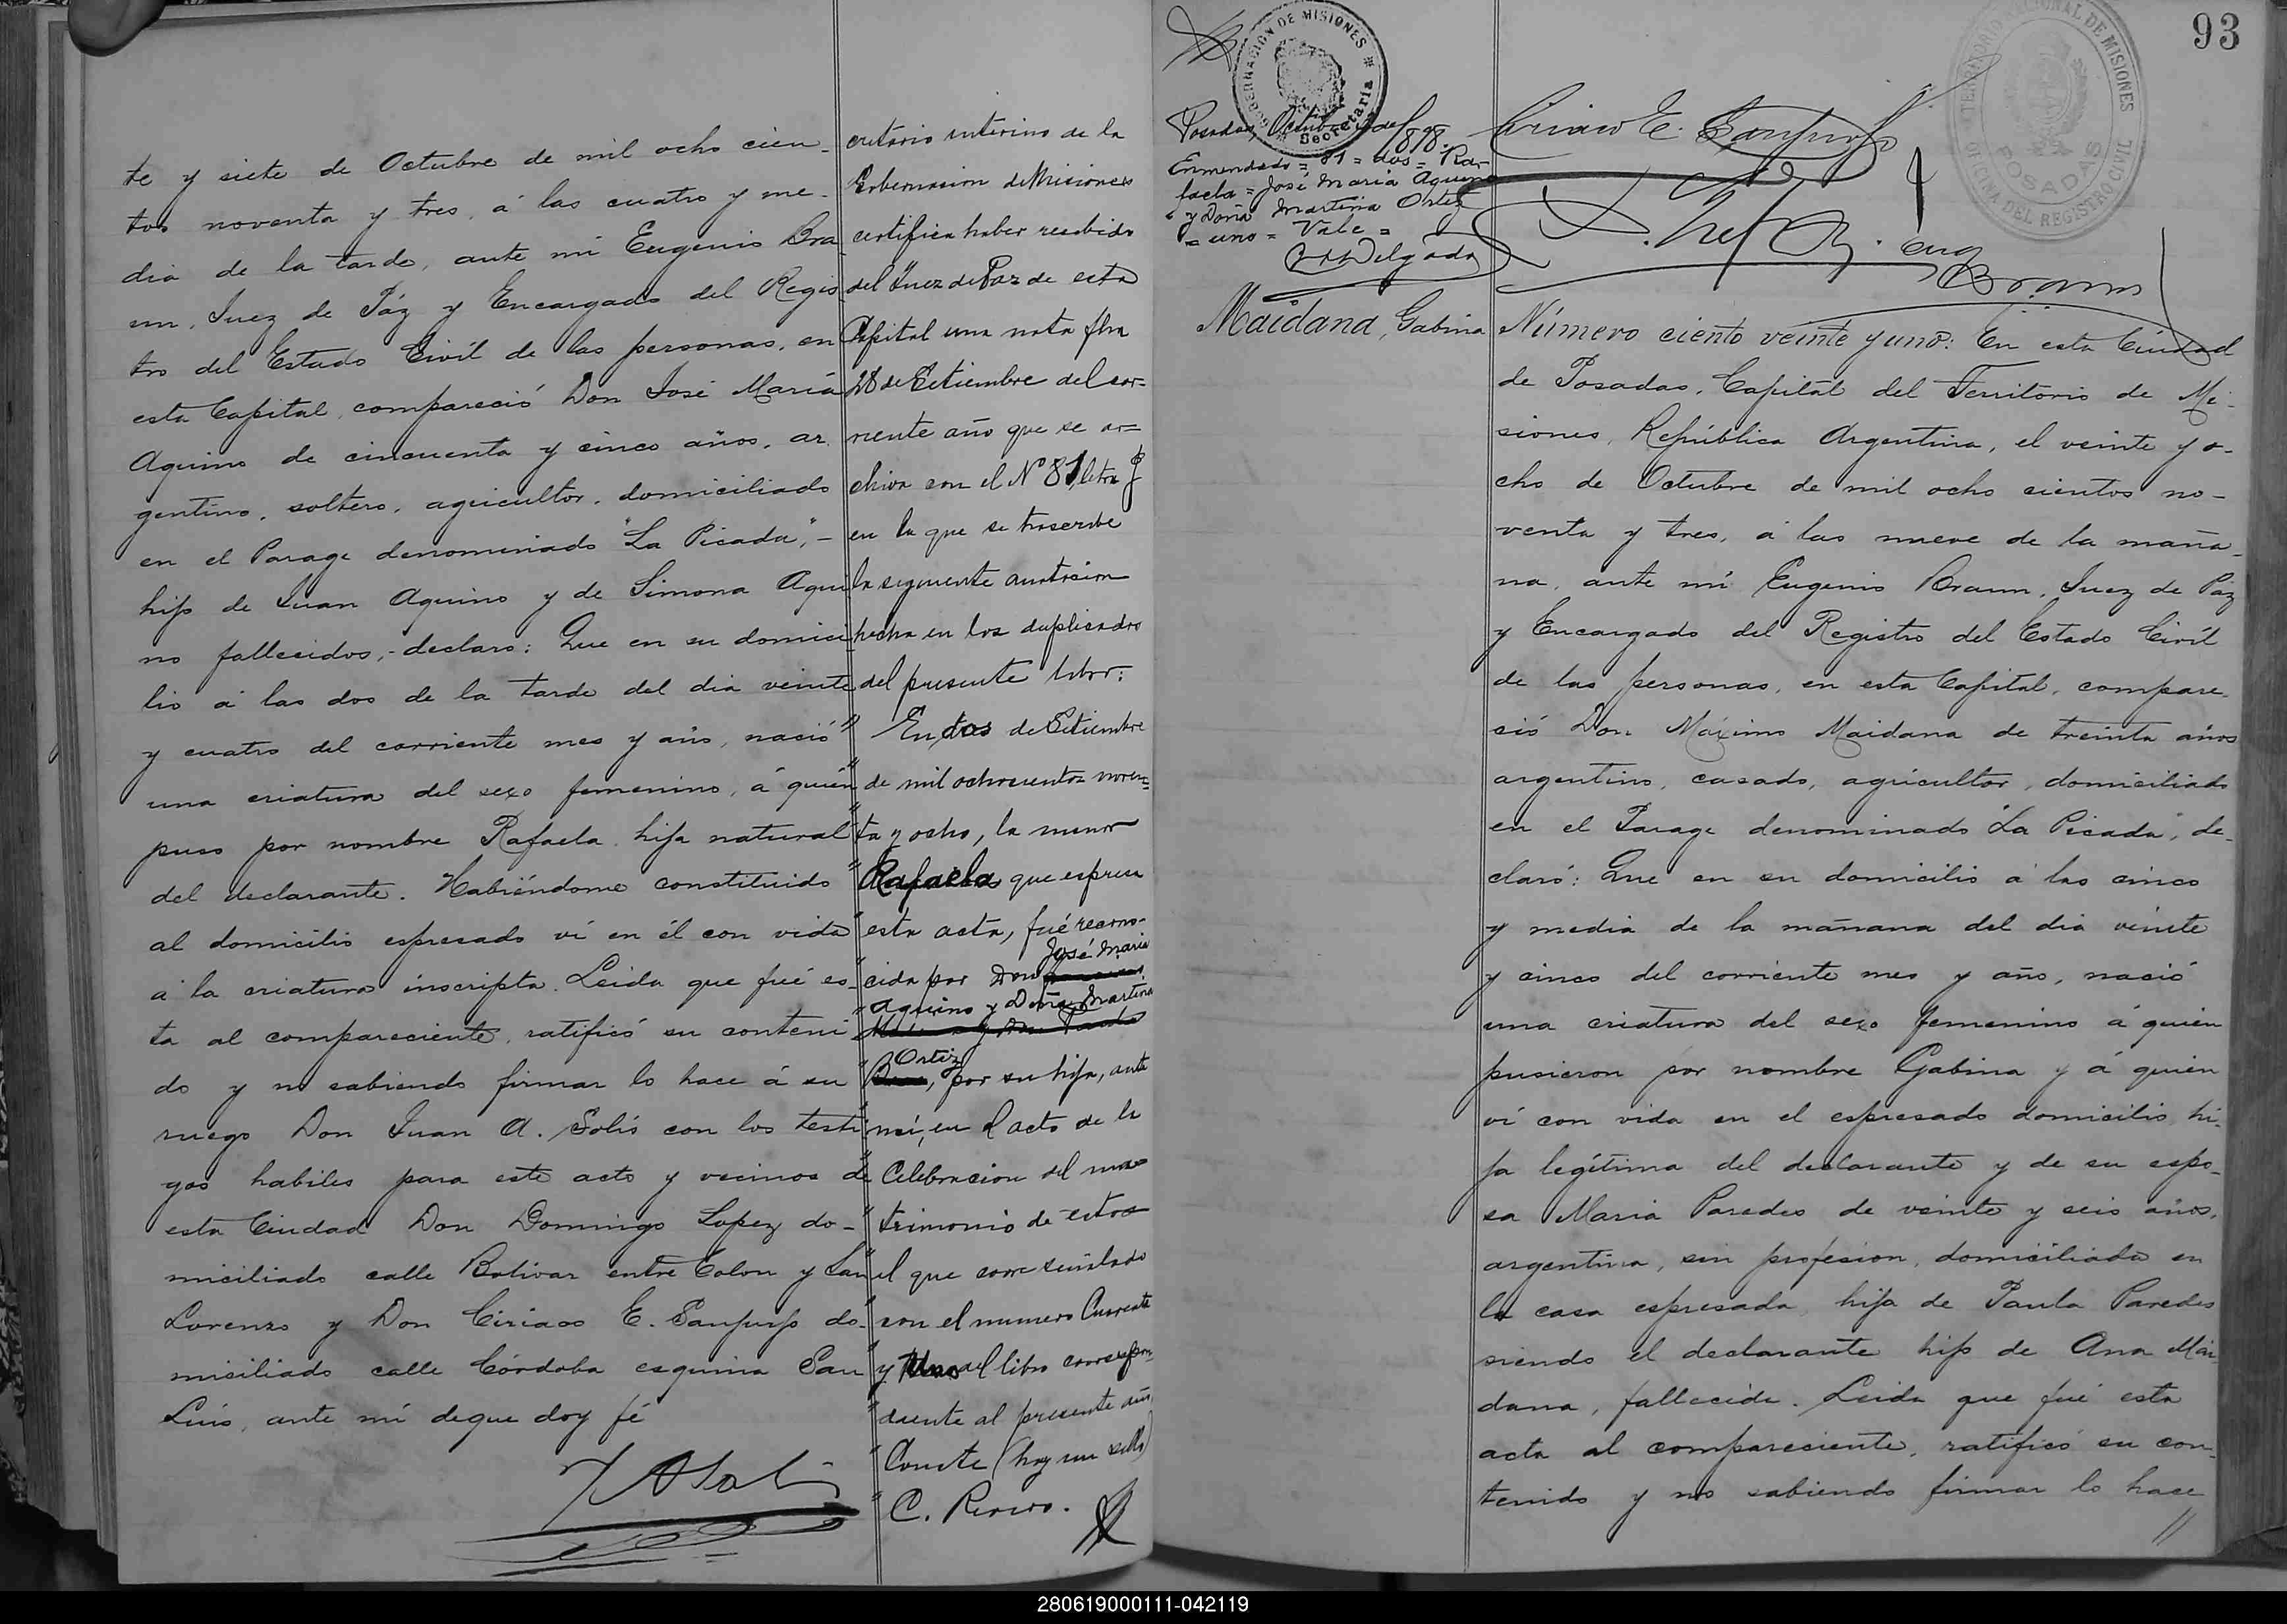 te y siete de Octubre de mil ocho cien-
tos noventa y tres, á las cuatro y me-
dia de la tarde, ante mi Eugenio Bra
un, Juez de Páz y Encargado del Regis
tro del Estado Civíl de las personas, en
esta Capital, compareció Don José María
Aquino de cincuenta y cinco años, ar
gentino, soltero, agricultor, domiciliado
en el Parage denominado "La Picada", -
hijo de Juan Aquino y de Simona Aqui
no fallecidos, - declaro: Que en su domici
lio á las dos de la tarde del dia veinte
y cuatro del corriente mes y año, nació
una criatura del sexo femenino, á quién
puso por nombre Rafaela, hija natural
del declarante. Habiéndome constituido
al domicilio espresado ví en él con vida
á la criatura inscripta. Leida que fué es-
ta al compareciente, ratificó su conteni
do y no sabiendo firmar lo hace á su
ruego Don Juan A. Solis con los testi
gos habiles para este acto y vecinos de
esta Ciudad Don Domingo Lopez do-
miciliado calle Bolivar entre Colon y San
Lorenzo y Don Ciriaco E. Sanfurjo do-
miciliado calle Córdoba esquina San
Luis, ante mí deque doy fé
J A Solis
cretario interino de la
Gobernacion de Misiones
certifica haber recibido
del Juez de Paz de esta
Capital una nota fha
28 de Setiembre del cor=
riente año que se ar=
chiva con el Nº 81 letra J
en la que se trascribe
la siguiente anotacion
hecha en los duplicados
del presente libro:
" En dos de Setiembre
" de mil ochocientos noven=
" ta y ocho, la menor
" Rafaela que espresa
" esta acta, fué recono-
José Maria
" cida por Don
" Aquino y Doña Martina
Ortiz
" , por su hija, ante
" mí, en el acto de la
" Celebracion del ma=
" trimonio de estos
" el que corre señalado
" con el numero Cuarenta
" y Uno del libro correspon=
" diente al presente año,
" Conste (hay un sello)
" C. Rivero.
GOBERNACION DE MISIONES
Secretaría
Posadas, Octubre de 1898.
Enmendado = 81 = dos = Ra-
faela = José Maria Aquino
y Doña Martina Ortiz
= uno = Vale =
Delgado
93
TERRITORIO NACIONAL DE MISIONES
POSADAS
OFICINA DEL REGISTRO CIVIL
Ciriaco E. Sanfurjo
Eug Braun
Maidana, Gabina
Número ciento veinte y uno: En esta Ciudad
de Posadas, Capital del Territorio de Mi-
siones, República Argentina, el veinte y o-
cho de Octubre de mil ocho cientos no-
venta y tres, á las nueve de la maña-
na, ante mí Eugenio Braun, Juez de Páz
y Encargado del Registro del Estado Civíl
de las personas, en esta Capital, compare-
ció Don Máximo Maidana de treinta años
argentino, casado, agricultor, domiciliado
en el Parage denominado "La Picada", de-
claró: Que en su domicilio á las cinco
y media de la mañana del dia veinte
y cinco del corriente mes y año, nació
una criatura del sexo femenino á quién
pusieron por nombre Gabina y á quién
ví con vida en el espresado domicilio, hi-
ja legítima del declarante y de su espo-
sa Maria Paredes de veinte y seis años,
argentina, sin profesion, domiciliada en
la casa espresada, hija de Paula Paredes
siendo el declarante hijo de Ana Mai
dana, fallecida. Leida que fué esta
acta al compareciente, ratificó su con-
tenido y no sabiendo firmar lo hace
//
280619000111-042119